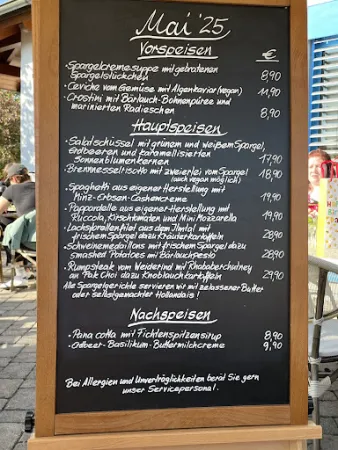 Mai '25
Vorspeisen €
• Spargelcremesuppe mit gebratenen
Spargelstückchen 8,90
• Ceviche vom Gemüse mit Algenkaviar (vegan) 11,90
• Crostini mit Bärlauch-Bohnenpüree und
marinierten Radieschen 8,90
Hauptspeisen
• Salatschüssel mit grünem und weißem Spargel,
Erdbeeren und karamellisierten
Sonnenblumenkernen 17,90
• Brennnesselrisotto mit zweierlei vom Spargel 18,90
(auch vegan möglich)
• Spaghetti aus eigener Herstellung mit
Minz-Erbsen-Cashewcreme 19,90
• Pappardelle aus eigener Herstellung mit
Ruccola, Kirschtomaten und Mini Mozzarella 19,90
• Lachsforellenfilet aus dem Ilmtal mit
frischem Spargel dazu Kräuterkartoffeln 28,90
• Schweinemedaillons mit frischem Spargel dazu
smashed Potatoes mit Bärlauchpesto 28,90
• Rumpsteak vom Weiderind mit Rhabarberchutney
an Pak Choi dazu Knoblauchkartoffeln 29,90
Alle Spargelgerichte servieren wir mit zerlassener Butter
oder selbstgemachter Hollandaise!
Nachspeisen
• Pana cotta mit Fichtenspitzensirup 8,90
• Erdbeer-Basilikum-Buttermilchcreme 9,90
Bei Allergien und Unverträglichkeiten berät Sie gern
unser Servicepersonal.